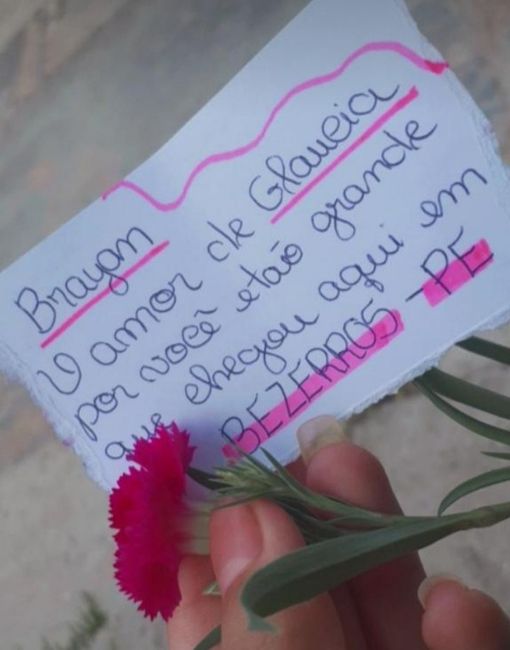 Brayan
O amor de Glaucia
por você é tão grande
que chegou aqui em
BEZERROS - PE